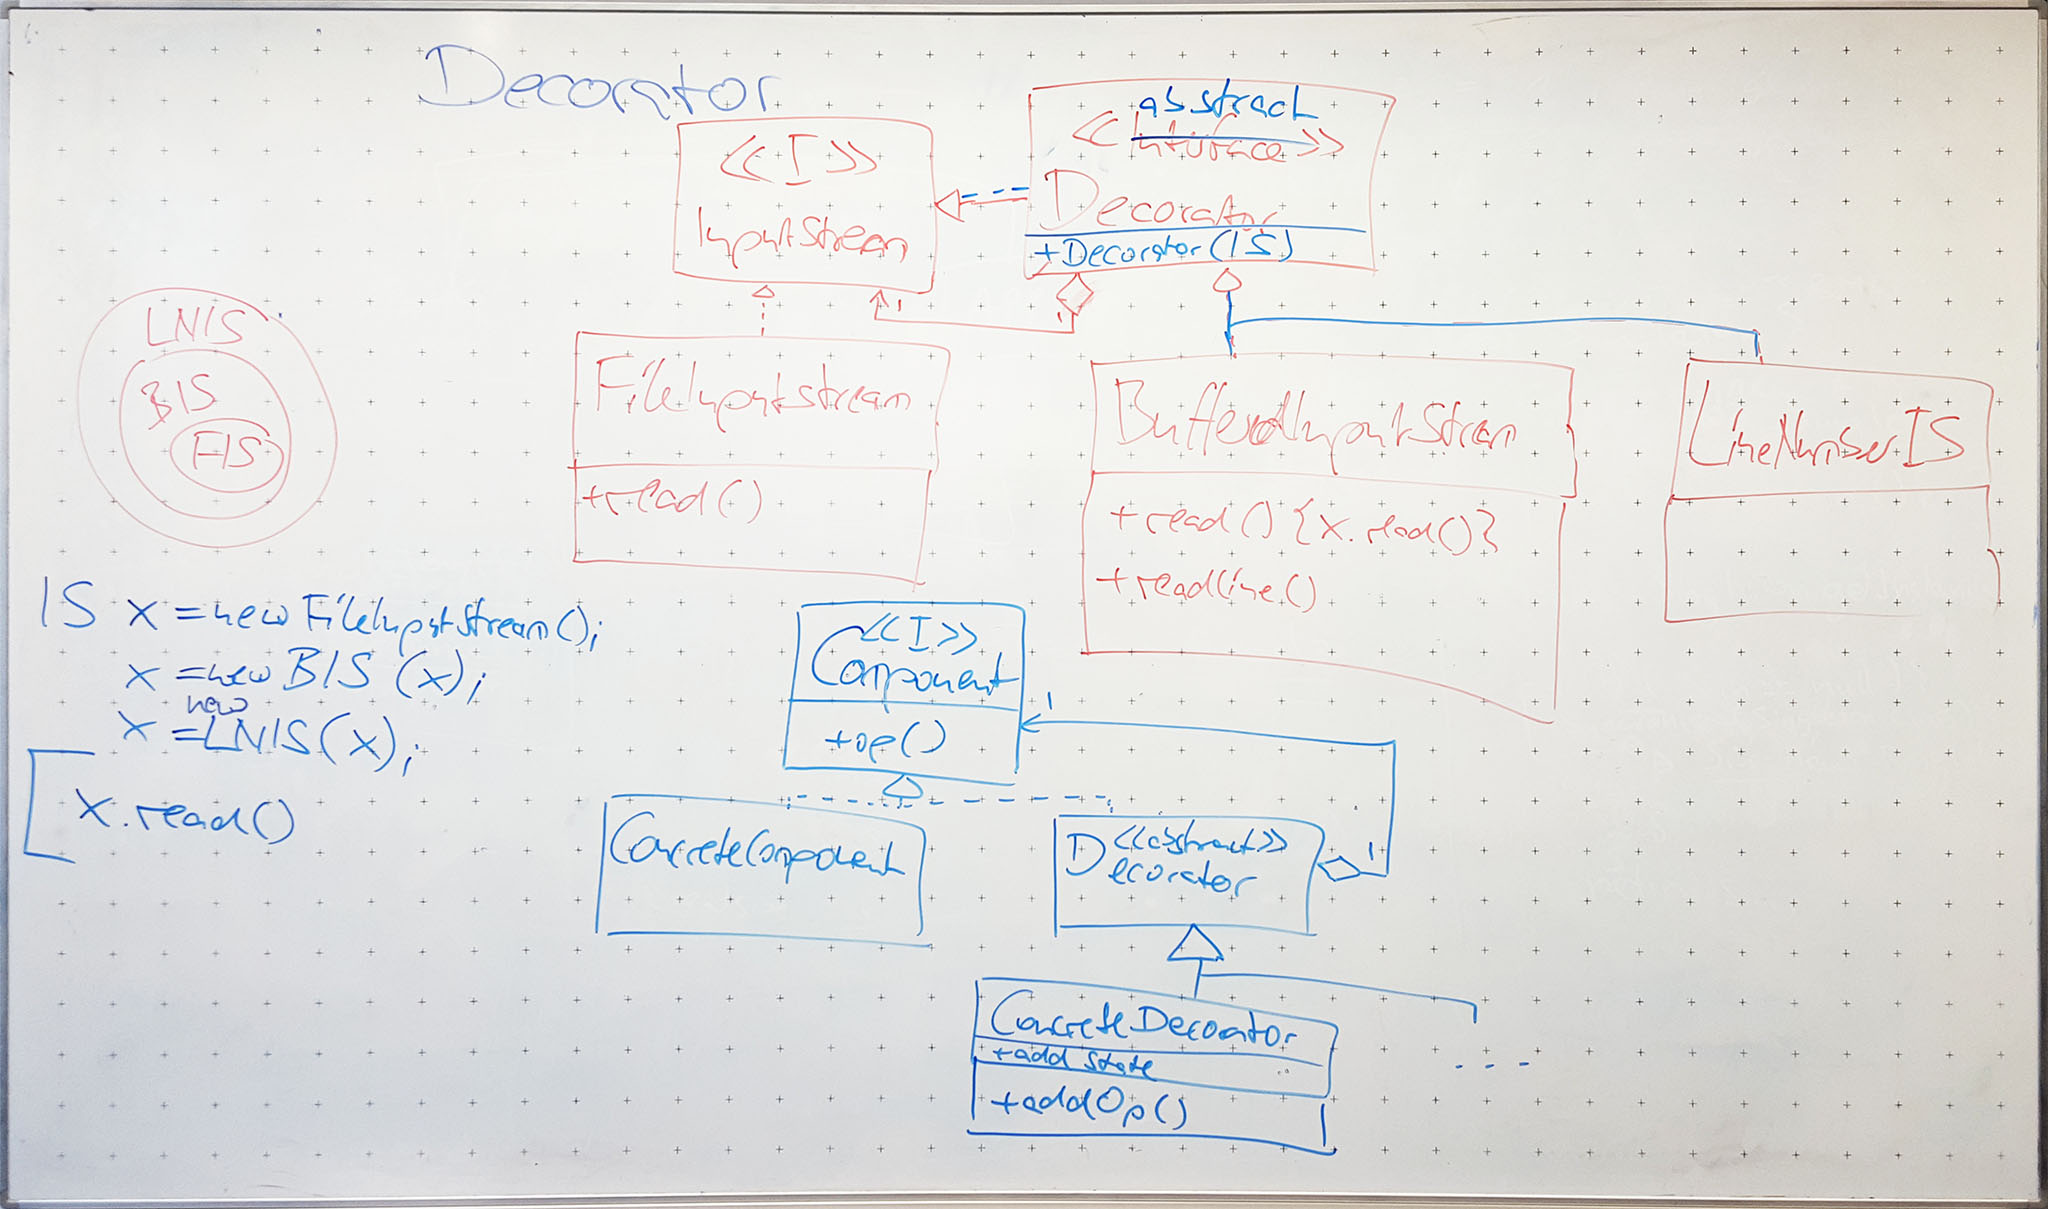 Decorator
<<I>>
InputStream
abstract
<<Interface>>
Decorator
+Decorator(IS)
1
1
LNIS
BIS
FIS
FileInputstream
+read()
BufferedInputStream
+read() {x.read()}
+readline()
LineNumberIS
IS x = new FileInputStream();
x = new BIS (x);
new
x = LNIS(x);
x.read()
<<I>>
Component
+op()
1
ConcreteComponent
<<abstract>>
Decorator
1
ConcreteDecorator
+add State
+addOp()
...